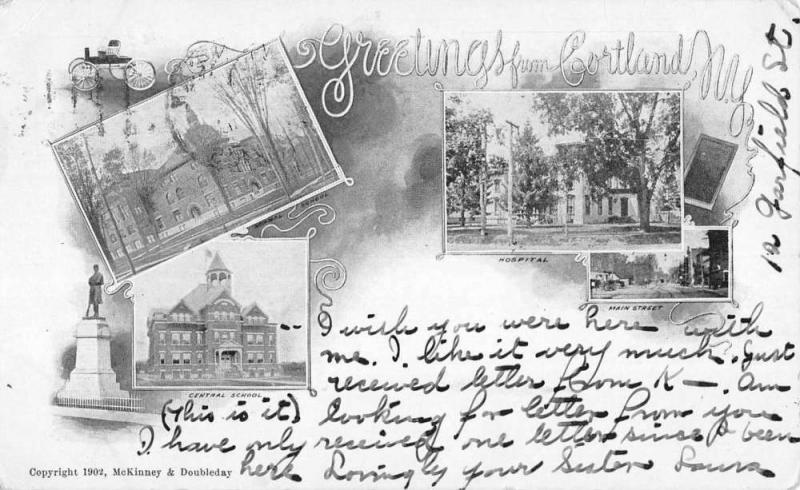 Greetings from Cortland, N.Y.
12 Garfield St.
NORMAL SCHOOL
HOSPITAL
MAIN STREET
CENTRAL SCHOOL
I wish you were here with
me. I like it very much. Just
received letter from K—. Am
(This is it) looking for letter from you
I have only received one letter since I been
here Lovingly your Sister Laura
Copyright 1902, McKinney & Doubleday